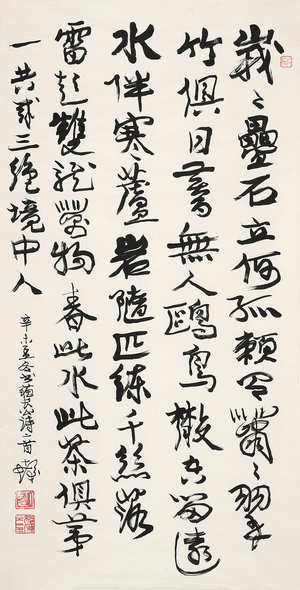 峩〻疊石立何孤賴有叢〻翠
竹俱日暮無人鷗鳥散空留遠
水伴寒蘆岩隨匹練千絲落
雷起雙龍萬物春此水此茶俱第
一共成三絕境中人
辛未至冬書詩二首